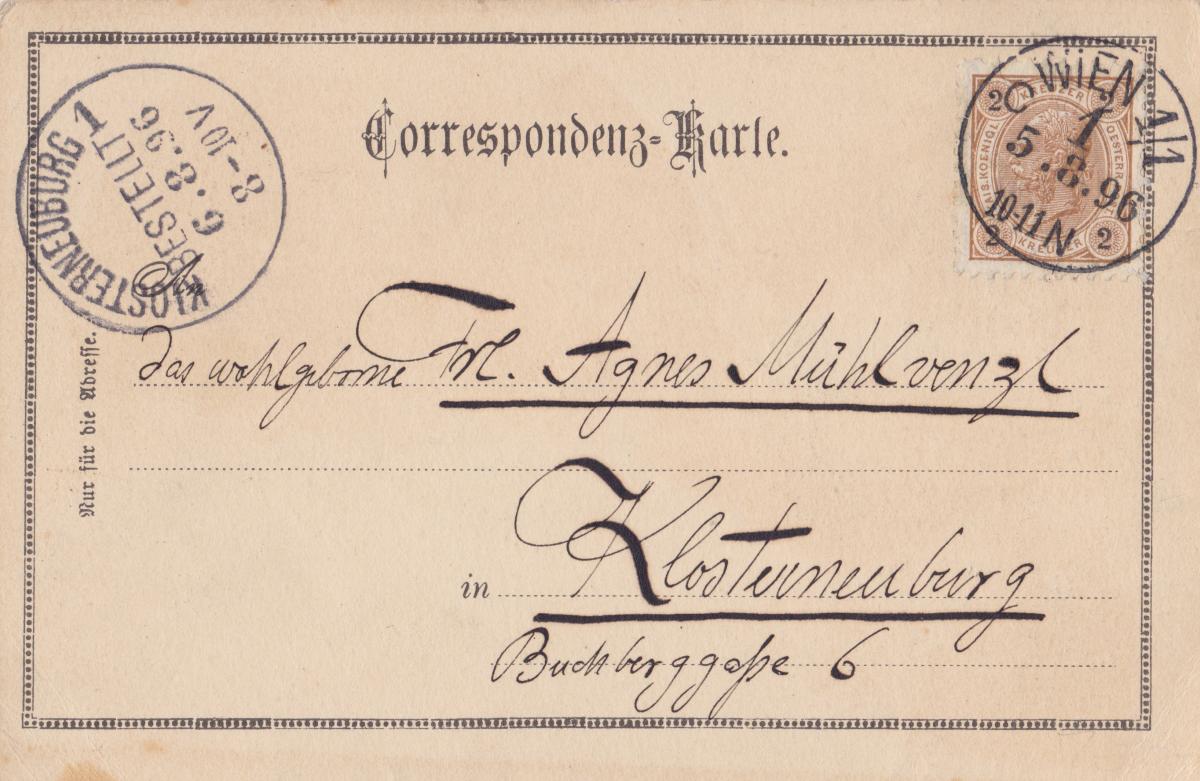 Correspondenz-Karte.
WIEN 1/1
1
5.8.96
10-11 N
2 KREUZER 2
2 KREUZER 2
KLOSTERNEUBURG 1
BESTELLT
6.8.96
8-10V
An
das wohlgeborne Frl. Agnes Mühlvenzl
in Klosterneuburg
Buchberggaße 6
Nur für die Adresse.